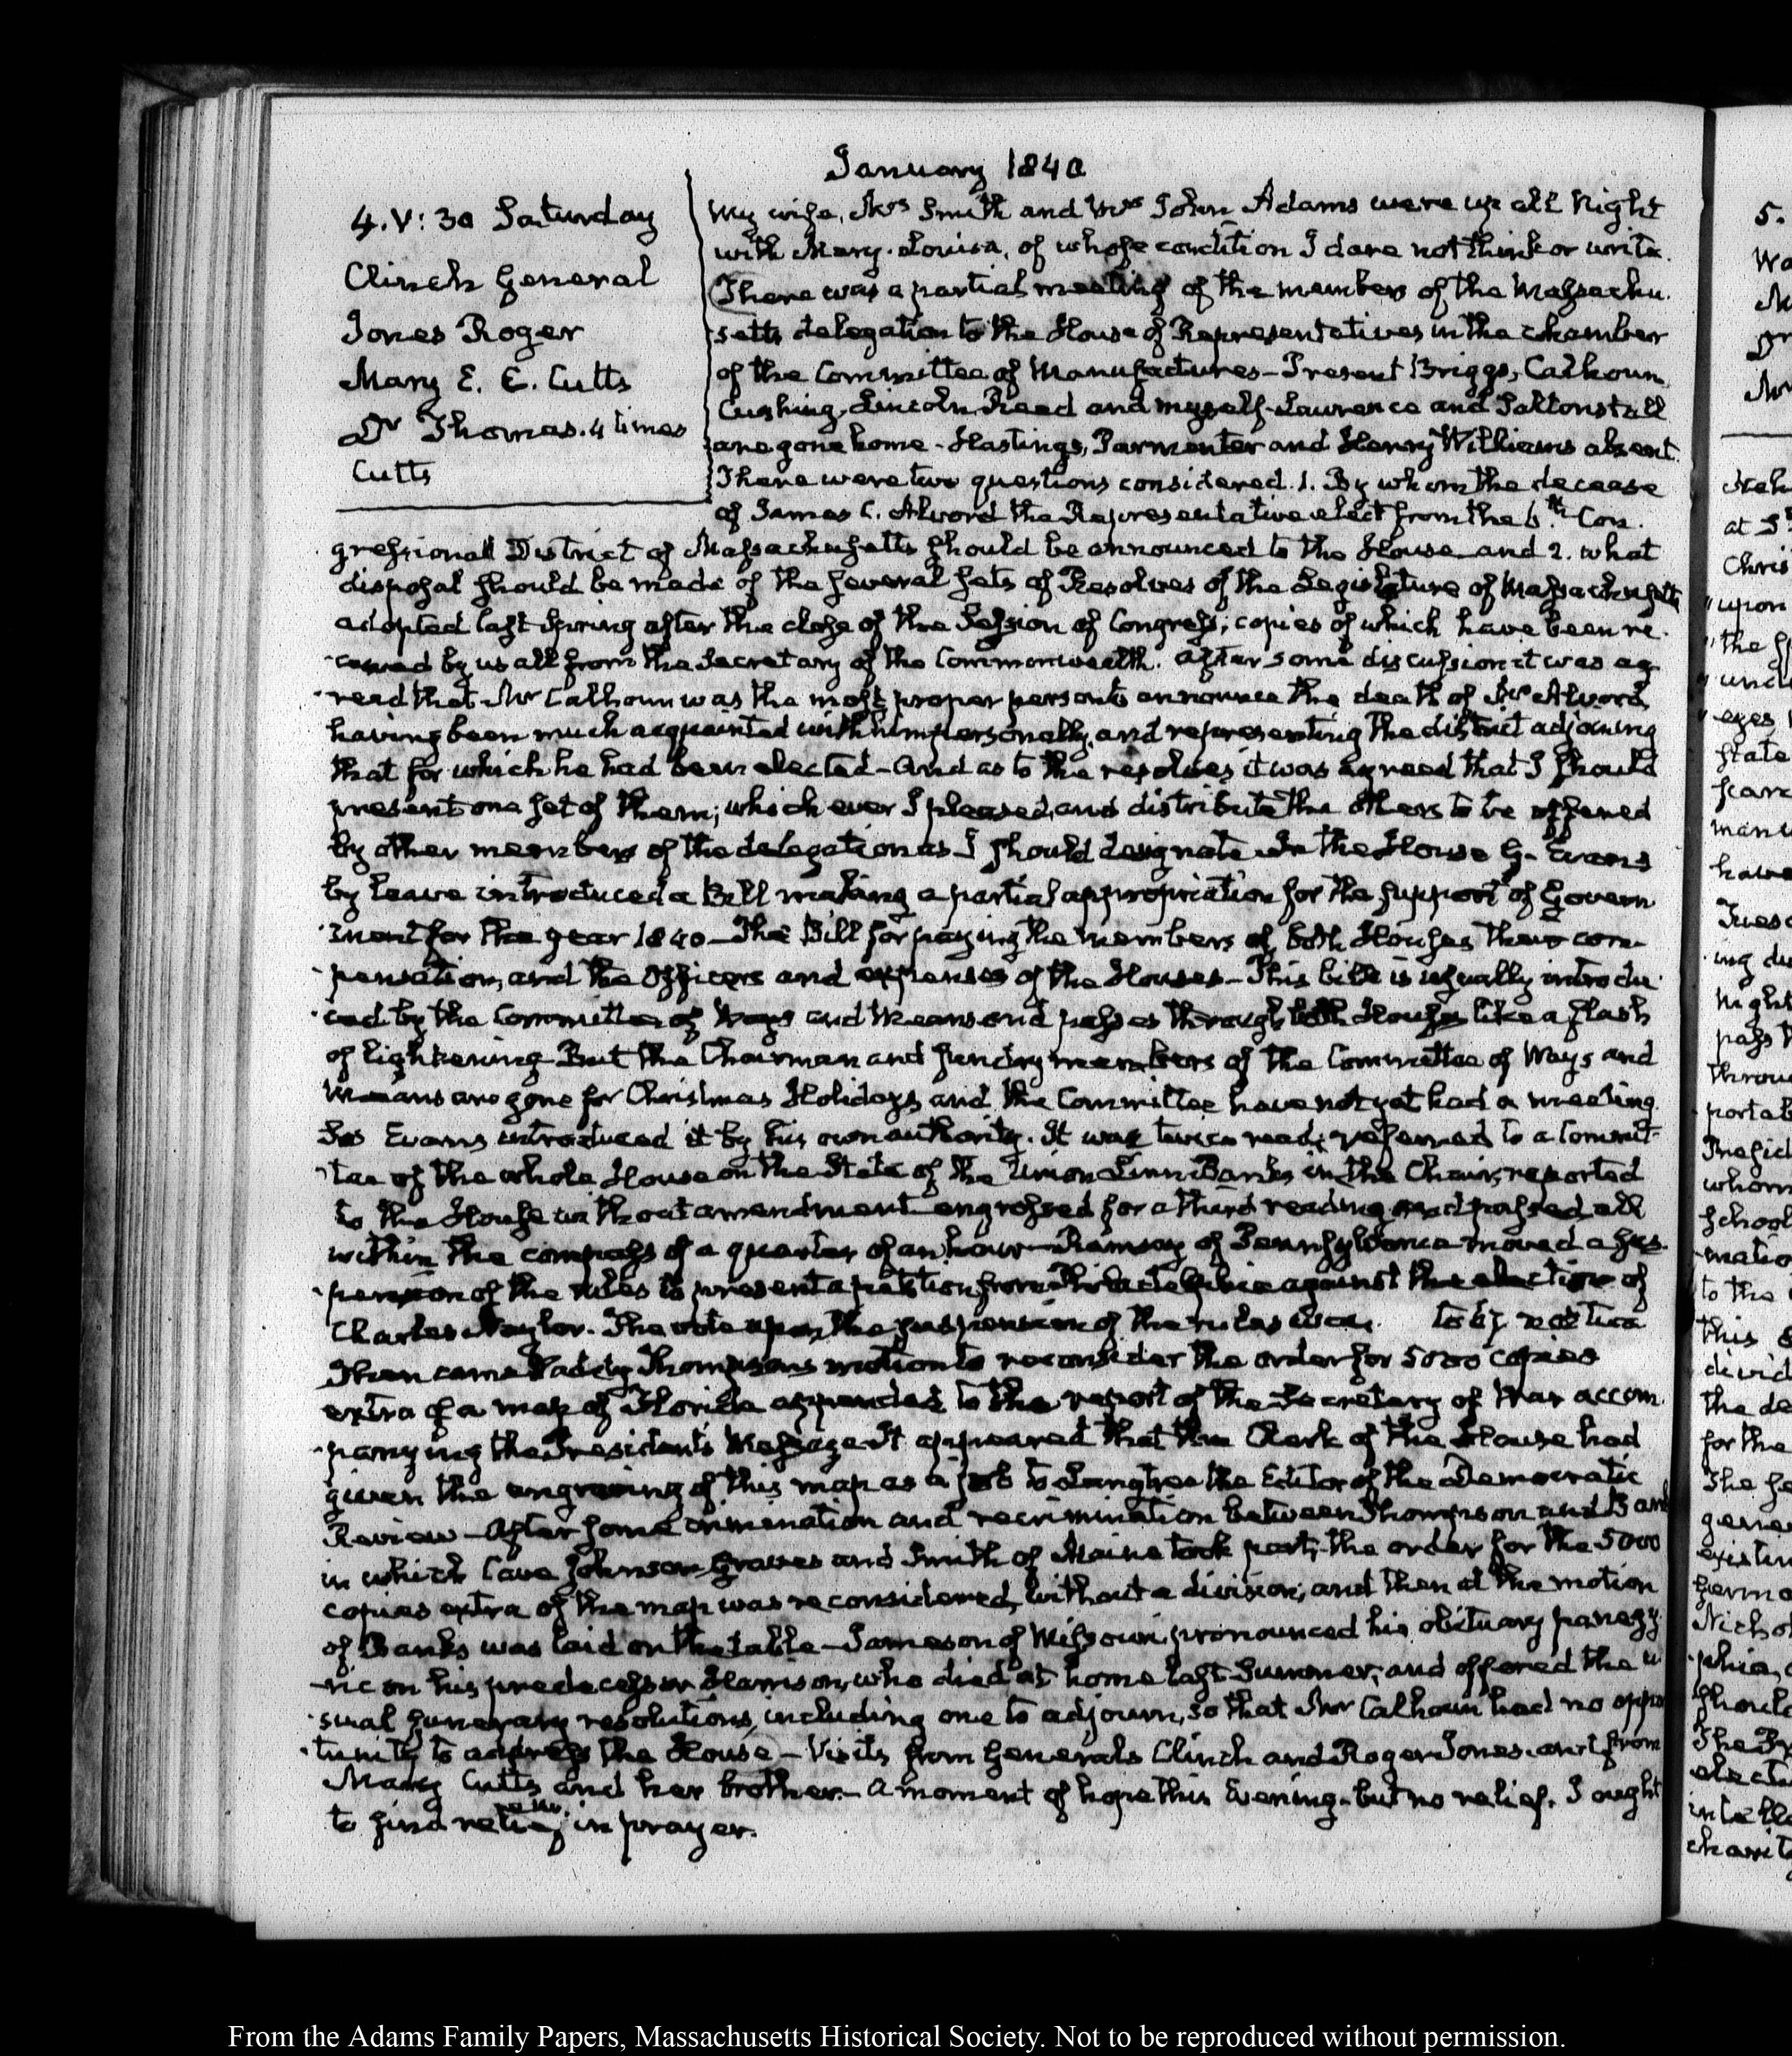 January 1840
4. V: 30 Saturday
Clinch General
Jones Roger
Mary E. E. Cutts
Dr Thomas. 4 times
Cutts
My wife, Mrs Smith and Mrs John Adams were up all Night
with Mary-Louisa, of whose condition I dare not think or write.
There was a partial meeting of the members of the Massachu-
setts delegation to the House of Representatives in the chamber
of the Committee of Manufactures — Present Briggs, Calhoun,
Cushing, Lincoln, Reed and myself. Lawrence and Saltonstall
are gone home — Hastings, Parmenter and Henry Williams absent.
There were two questions considered. 1. By whom the decease
of James C. Alvord the Representative elect from the 6th Con-
gressional District of Massachusetts should be announced to the House and 2. what
disposal should be made of the several sets of Resolves of the Legislature of Massachusetts
adopted last Spring after the close of the Session of Congress; copies of which have been re-
-ceived by us all from the Secretary of the Commonwealth. After some discussion it was ag-
-reed that Mr Calhoun was the most proper person to announce the death of Mr Alvord,
having been much acquainted with him personally, and representing the district adjoining
that for which he had been elected — And as to the resolves it was agreed that I should
present one set of them; which ever I pleased, and distribute the others to be offered
by other members of the delegation as I should designate. In the House G. Evans
by leave introduced a Bill making a partial appropriation for the support of Govern-
-ment for the year 1840 — The Bill for paying the members of both Houses their com-
-pensation, and the Officers and expenses of the Houses — This bill is usually introdu-
-ced by the Committee of Ways and Means and passes through both Houses like a flash
of lightening. But the Chairman and sundry members of the Committee of Ways and
Means are gone for Christmas Holidays, and the Committee have not yet had a meeting.
So Evans introduced it by his own authority. It was twice read; referred to a Commit-
-tee of the whole House on the State of the Union Linn Banks in the Chair, reported
to the House without amendment engrossed for a third reading and passed all
within the compass of a quarter of an hour — Ramsay of Pennsylvania moved a sus-
-pension of the rules to present a petition from Philadelphia against the election of
Charles Naylor. The vote upon the suspension of the rules was to by
Then came Waddy Thompson's motion to reconsider the order for 5000 copies
extra of a map of Florida appended to the report of the Secretary of War accom-
-panying the President's Message. It appeared that the Clerk of the House had
given the engraving of this map as a job to Langtree the Editor of the Democratic
Review — After some crimination and recrimination between Thompson and Banks
in which Cave Johnson, Graves and Smith of Maine took part, the order for the 5000
copies extra of the map was reconsidered, without a division, and then at the motion
of Banks was laid on the table — Jameson of Missouri, pronounced his obituary panegy-
-ric on his predecessor Harrison, who died at home last Summer; and offered the u-
-sual funerary resolutions, including one to adjourn, so that Mr Calhoun had no oppor-
-tunity to address the House — Visits from Generals Clinch and Roger Jones. and from
Mary Cutts and her brother — A moment of hope this Evening — but no relief. I ought
to find relief in prayer.
From the Adams Family Papers, Massachusetts Historical Society. Not to be reproduced without permission.